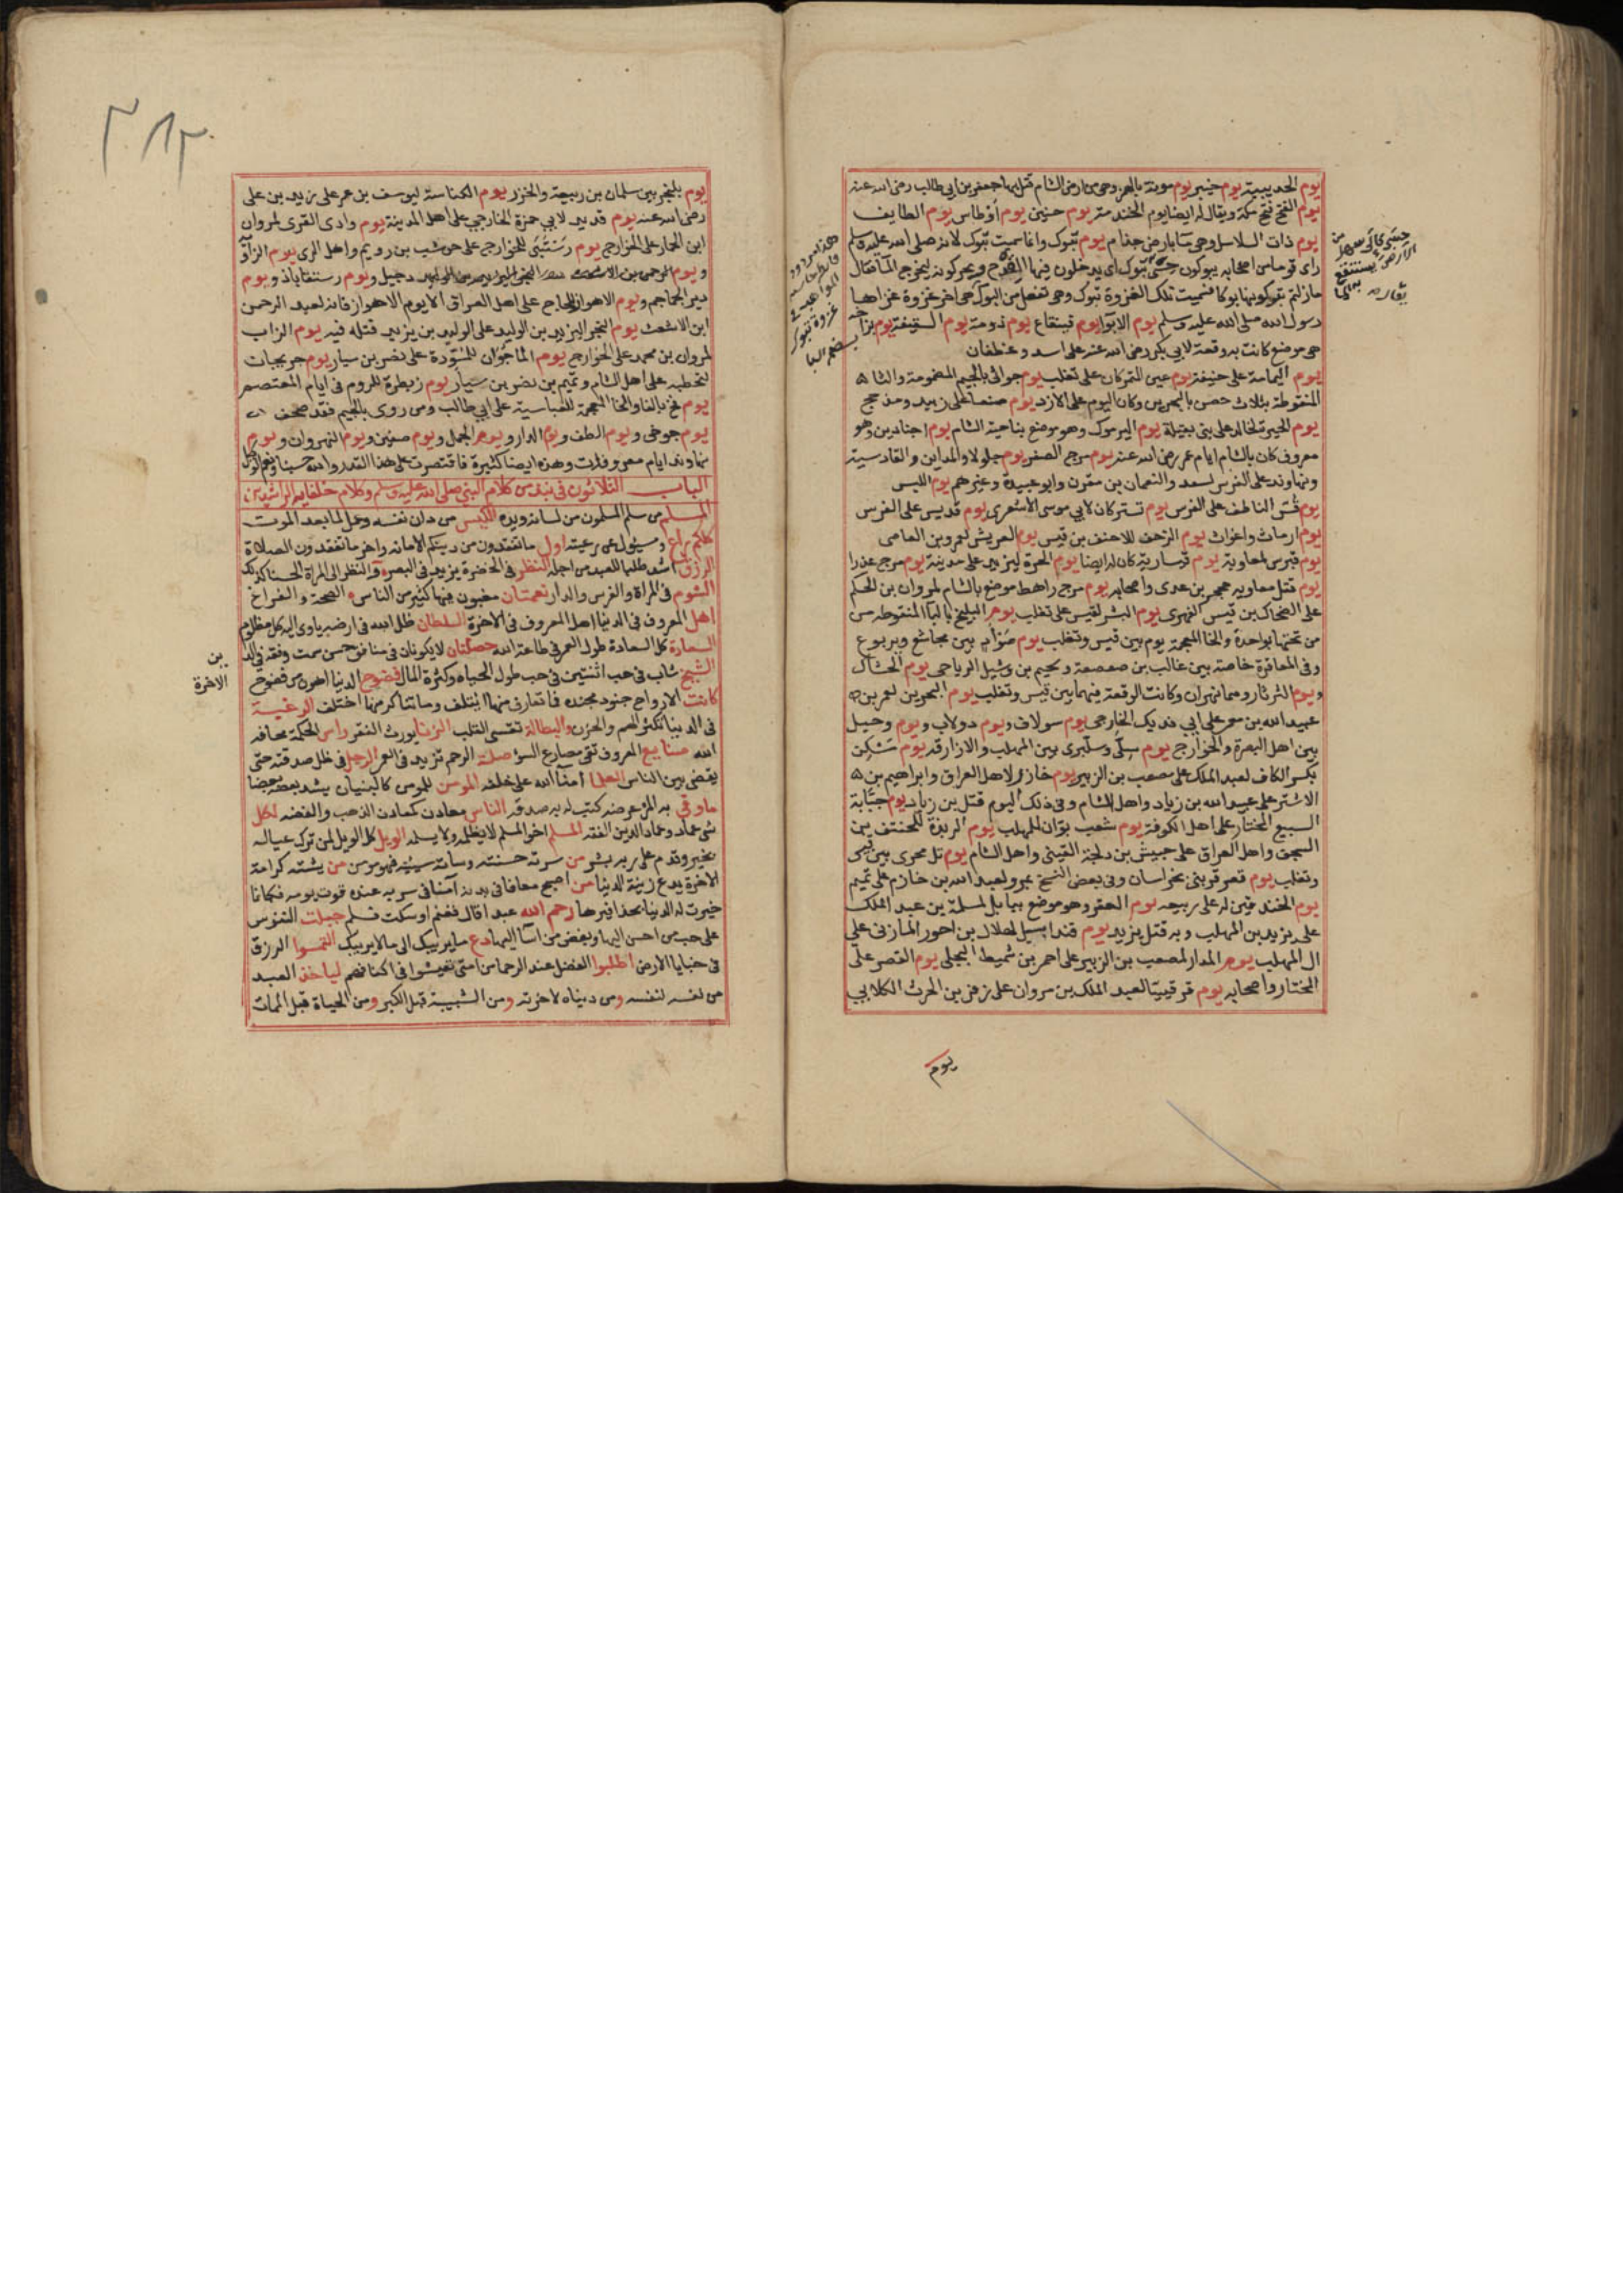 يوم الحديبية يوم خيبر يوم موتة بالهمز وهي من ارض الشام قتل بها جعفر بن ابي طالب رضي الله عنه
يوم الفتح فتح مكة ويقال له ايضا يوم الخندمة يوم حنين يوم اوطاس يوم الطايف
يوم ذات السلاسل وهي بارض جذام يوم تبوك وانما سميت تبوك لانه صلى الله عليه وسلم
راى قوما من اصحابه يبوكون حسي تبوك اي يدخلون فيها القدح ويحركونه ليخرج الما فقال
مازلتم تبوكونها بوكا فسميت تلك الغزوة تبوك وهي تفعل من البوك وهي اخر غزوة غزاها
رسول الله صلى الله عليه وسلم يوم الابوا يوم قينقاع يوم دومة يوم السقيفة يوم بزاخه
هي موضع كانت به وقعة لابي بكر رضي الله عنه على اسد و غطفان
يوم اليمامة على حنيفة يوم عين التمر كان على تغلب يوم جواثى بالجيم المضمومة والثا
المنقوطة بثلاث حصن بالبحرين وكان اليوم على الازد يوم صنعا على زبيد ومذحج
يوم الحيرة لخالد على بني بقيلة يوم اليرموك وهو موضع بناحية الشام يوم اجنادين وهو
معروف كان بالشام ايام عمر رضي الله عنه يوم مرج الصفر يوم جلولا والمداين والقادسية
ونهاوند على الفرس لسعد والنعمان بن مقرن وابو عبيدة وغيرهم يوم الليس
يوم قس الناطف على الفرس يوم تستر كان لابي موسى الاشعري يوم قديس على الفرس
يوم ارماث واغواث يوم الزحف للاحنف بن قيس يوم العريش لعمرو بن العاصي
يوم قبرس لمعاوية يوم قيسارية كان له ايضا يوم الحرة ليزيد على مدينة يوم مرج عذرا
يوم قتل معاويه حجر بن عدى واصحابه يوم مرج راهط موضع بالشام لمروان بن الحكم
على الضحاك بن قيس الفهري يوم البشر لقيس على تغلب يوم البليخ بالبا المنقوطه من
من تحتها بواحدة والخا المعجمة يوم بين قيس وتغلب يوم صوار بين مجاشع ويربوع
وفي المعاقرة خاصة بين غالب بن صعصعة وسحيم بن وثيل الرياحي يوم الحشاك
ويوم الثرثار وهما نهران وكانت الوقعة فيهما بين قيس وتغلب يوم البحرين لعمر بن
عبيد الله بن معمر على ابي فديك الخارجي يوم سولاف ويوم دولاب ويوم
بين اهل البصرة والخوارج يوم سلى وسلبرى بين المهلب والازارقة يوم مسكن
بكسر الكاف لعبد الملك على مصعب بن الزبير يوم خازر لاهل العراق وابراهيم بن
الاشتر على عبيد الله بن زياد واهل الشام وفي ذلك اليوم قتل بن زياد يوم جبانة
السبيع للمختار على اهل الكوفة يوم شعب بوان للمهلب يوم الربذة للحنتف بن
السجف واهل العراق على حبيش بن دلجة القيني واهل الشام يوم تل محرى بين قيس
وتغلب يوم قصر قرنبى بخراسان وفي بعض النسخ بمرو لعبد الله بن خازم على تميم
يوم الخندقين له على ربيعه يوم العقر وهو موضع ببابل لمسلمة بن عبد الملك
على يزيد بن المهلب وبه قتل يزيد يوم قندابيل لهلال بن احوز المازني على
ال المهلب يوم المذار لمصعب بن الزبير على احمر بن شميط البجلي يوم القصر على
المختار واصحابه يوم قرقيسيا لعبد الملك بن مروان على زفر بن الحرث الكلابي
يوم
غزوة تبوك
يوم بلنجر بين سلمان بن ربيعة والخزر يوم الكناسة ليوسف بن عمر على زيد بن على
رضي الله عنه يوم قديد لابي حمزة الخارجي على اهل المدينة يوم وادي القرى لمروان
ابن الحمار على الخوارج يوم للخوارج على حوشب بن رويم واهل الرى يوم الزاو
دجيل ويوم رستقاباذ ويوم
دير الجماجم ويوم الاهواز للحجاج على اهل العراق الا يوم الاهواز فانه لعبد الرحمن
ابن الاشعث يوم البخرا ليزيد بن الوليد على الوليد بن يزيد قتله فيه يوم الزاب
لمروان بن محمد على الخوارج يوم الماجوان للمسودة على نصر بن سيار يوم جرجان
لقحطبه على اهل الشام وتميم بن نصر بن سيار يوم زبطرة للروم في ايام المعتصم
يوم فخ بالفا والخا المعجمة للعباسية على ابي طالب ومن روى بالجيم فقد صحف
يوم جوخى ويوم الطف ويوم الدار ويوم الجمل ويوم صفين ويوم النهروان ويوم
نهاوند ايام معروفات وهذه ايضا كثيرة فاقتصرت على هذا القدر والله حسبنا ونعم الوكيل
الباب الثلاثون في نبذ من كلام النبي صلى الله عليه وسلم وكلام خلفايه الراشدين
المسلم من سلم المسلمون من لسانه ويده الكيس من دان نفسه وعمل لما بعد الموت
كلكم راع ومسيول عن رعيته اول ما تفقدون من دينكم الامانه واخر ما تفقدون الصلاة
الرزق اشد طلبا للعبد من اجله النظر في الخضرة يزيد في البصر والنظر الى المراة الحسنا كذلك
الشوم في المراة والفرس والدار نعمتان مغبون فيها كثير من الناس الصحة والفراغ
اهل المعروف في الدنيا اهل المعروف في الاخرة السلطان ظل الله في ارضه ياوى اليه كل مظلوم
السعادة كل السعادة طول العمر في طاعة الله خصلتان لا يكونان في منافق حسن سمت وفقه في الدين
الشيخ شاب في حب اثنتين في حب طول الحياه وكثرة المال فضوح الدنيا اهون من فضوح
الاخرة
كانت الارواح جنود مجنده فما تعارف منها ائتلف وما تناكر منها اختلف الرغبة
في الدنيا تكثر الهم والحزن والبطالة تقسي القلب الزنا يورث الفقر راس الحكمة مخافة
الله صنايع المعروف تقي مصارع السؤ صلة الرحم تزيد في العمر الرجل في ظل صدقته حتى
يقضى بين الناس العلما امنا الله على خلقه المومن للمومن كالبنيان يشد بعضه بعضا
ما وقي به المرؤ عرضه كتب له به صدقه الناس معادن كمعادن الذهب والفضه لكل
شي عماد وعماد الدين الفقه المسلم اخو المسلم لا يظلمه ولا يسلمه الويل كل الويل لمن ترك عياله
بخير وقدم على ربه بشر من سرته حسنته وساته سيئته فهو مومن من يشته كرامة
الاخرة يدع زينة الدنيا من اصبح معافا في بدنه آمنا في سربه عنده قوت يومه فكانما
حيزت له الدنيا بحذافيرها رحم الله عبدا قال فغنم او سكت فسلم جبلت النفوس
على حب من احسن اليها وبغض من اسا اليها دع ما يريبك الى ما لا يريبك التمسوا الرزق
في خبايا الارض اطلبوا الفضل عند الرحما من امتي تعيشوا في اكنافهم لياخذ العبد
من نفسه لنفسه ومن دنياه لاخرته ومن الشبيبة قبل الكبر ومن الحياة قبل الممات